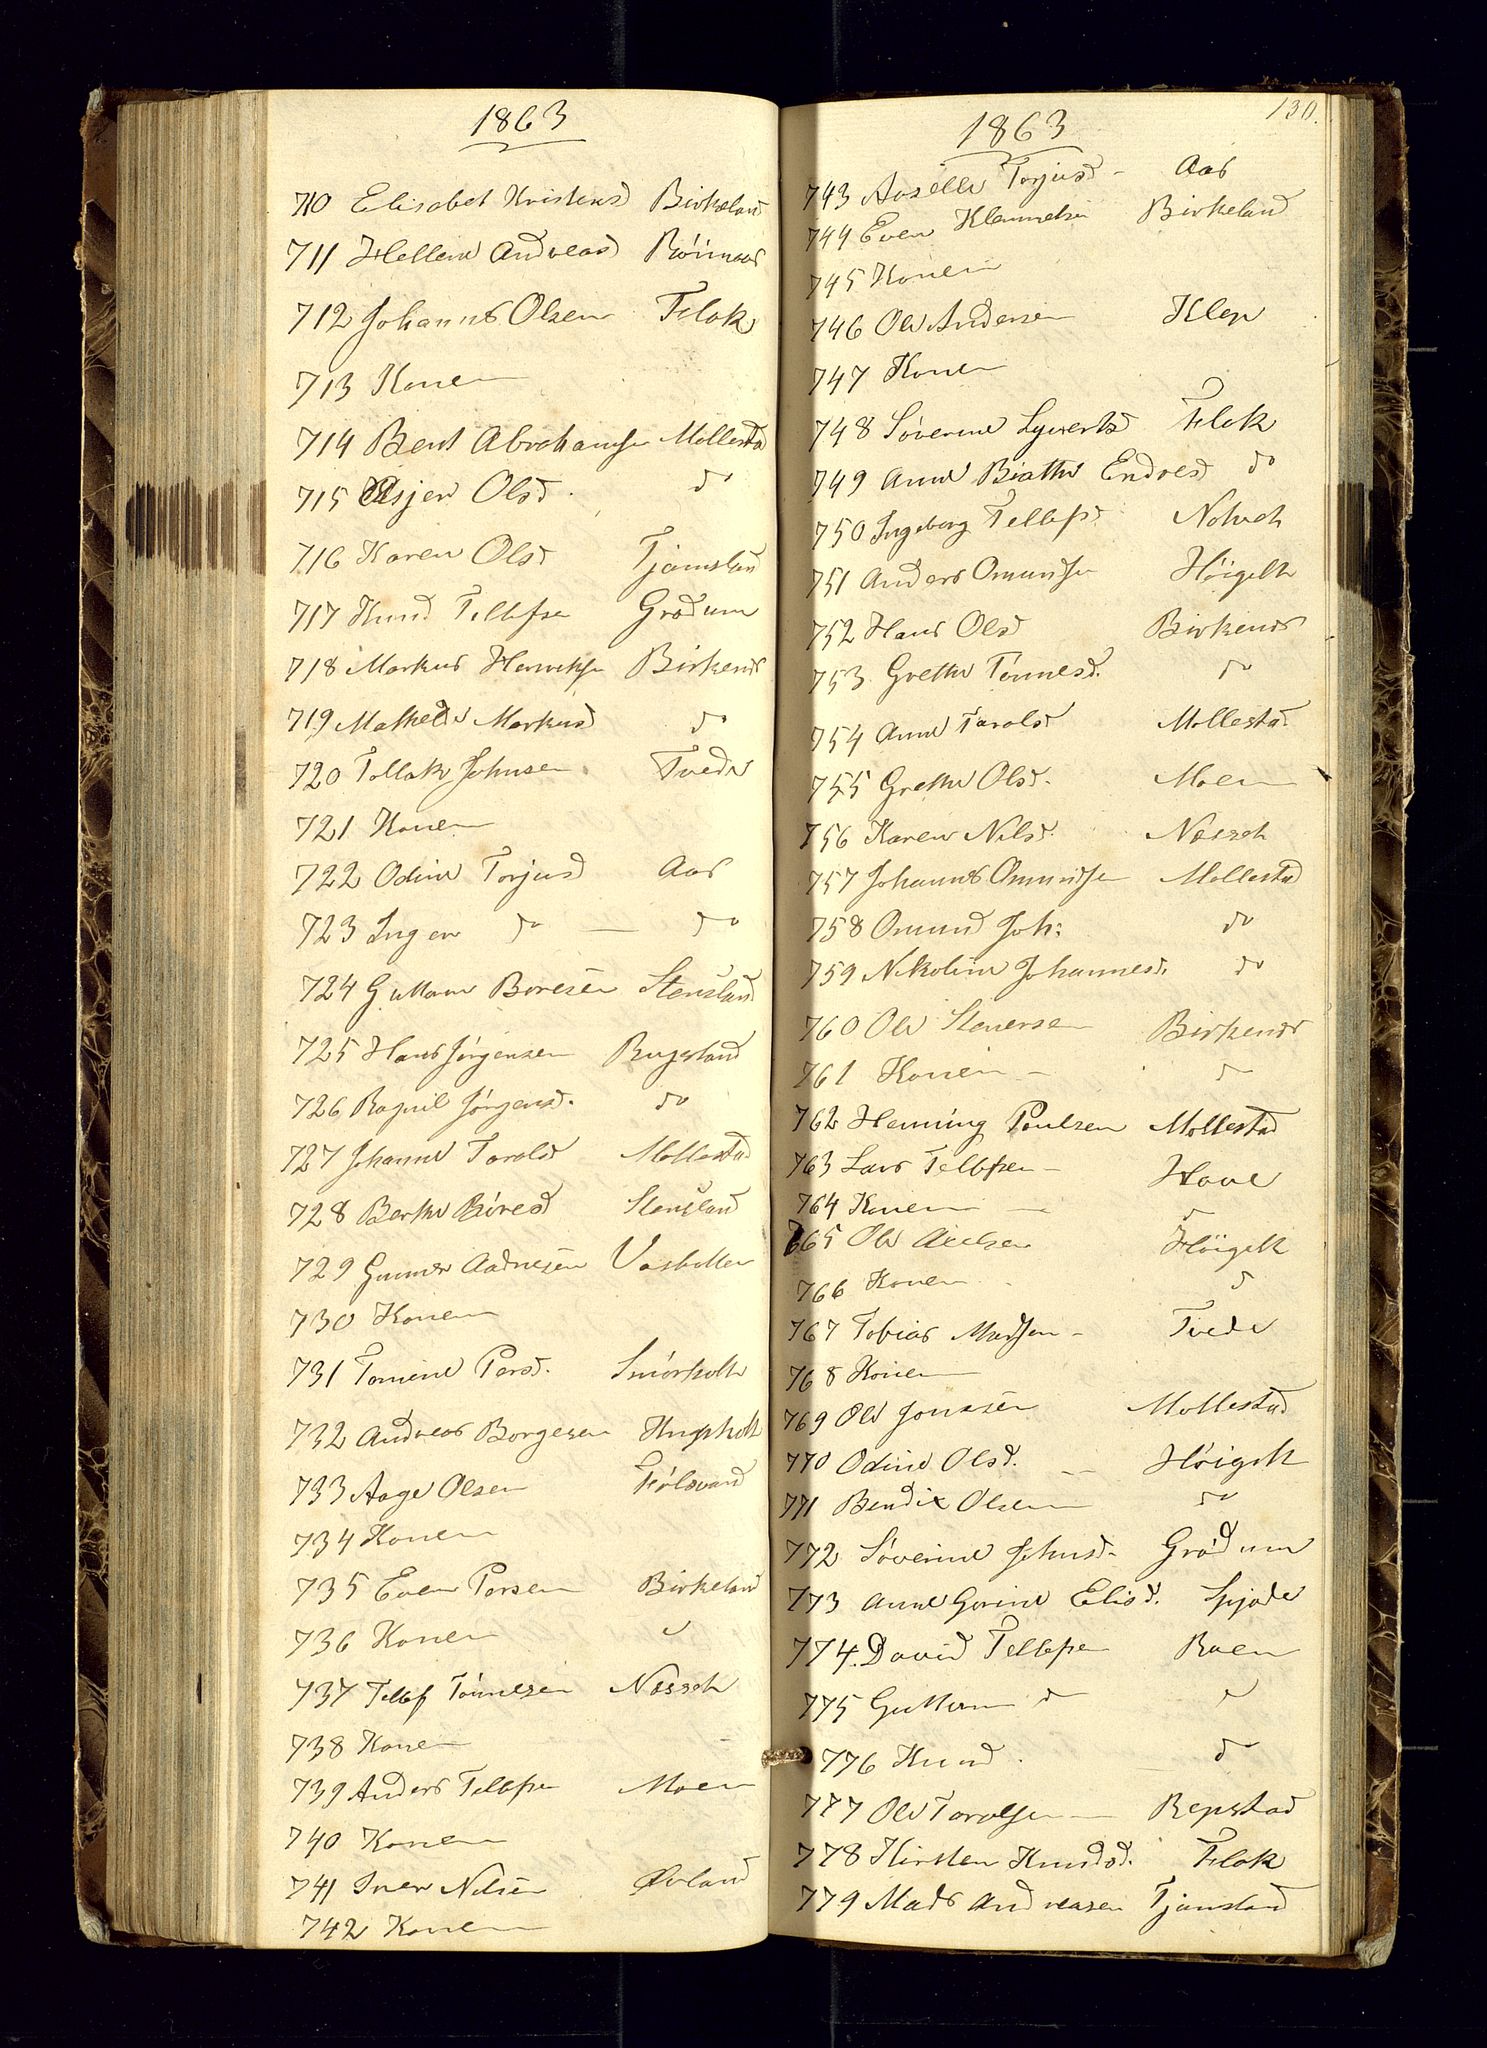 1863
710 Elisabet Kristensd Birkeland
711 Hellene Andreasd Röimaas
712 Johannes Olsen Flak
713 Konen
714 Bent Abrahamsen Mollestad
715 Asjer Olsd. do
716 Karen Olsd Tjomsland
717 Knud Tellefsen Grødum
718 Markus Henriksen Birkenes
719 Mathelde Markusd do
720 Tollak Johnsen Tvede
721 Konen
722 Odine Torjusd Aas
723 Inger do — do
724 Guttorm Boresen Stensland
725 Hans Jörgensen Rugsland
726 Ragnil Jörgensd. do
727 Johanne Taralds Mollestad
728 Berthe Böresd Stensland
729 Gunner Aadnesen Vasbotten
730 Konen
731 Tomine Persd. Smörholt
732 Andreas Borgesen Hngsholt
733 Aage Olsen Fiölsvand
734 Konen
735 Even Persen Birkeland
736 Konen
737 Tellef Tönnesen Næsseth
738 Konen
739 Anders Tellefsen Moen
740 Konen
741 Iver Nilsen Øvland
742 Konen
130.
1863
743 Aaselle Torjusd - Aas
744 Even Klemmetsen Birkeland
745 Konen
746 Ole Andersen Klep
747 Konen
748 Söverine Syvertsd Flak
749 Anne Biathe Endresd do
750 Ingeborg Tellefsd
751 Anders Omundsen Höigelt
752 Hans Olsd Birkenes
753 Grethe Tönnesd. do
754 Anne Taralsd Mollestad
755 Grethe Olsd. Moen
756 Karen Nilsd. Næsseth
757 Johannes Omundsen Mollestad
758 Omund Joh: do
759 Nikoline Johannesd. do
760 Ole Stenersen Birkenes
761 Konen - do
762 Henning Poulsen Mollestad
763 Lars Tellefsen - Hove
764 Konen — d
765 Ole Axelsen Höigelt
766 Konen d
767 Tobias Madsen - Tvede
768 Konen
769 Ole Jonssen Mollestad
770 Odine Olsd. Höigelt
771 Bendix Olsen do
772 Söverine Johnsd- Grödum
773 Anne Gorine Elisd. Spjode
774. David Tellefsen Boen
775 Guttorm d d
776 Knud d
777 Ole Taralsen — Repstad
778 Kirsten Knudsd. Flak
779 Mads Andreasen Tjomsland